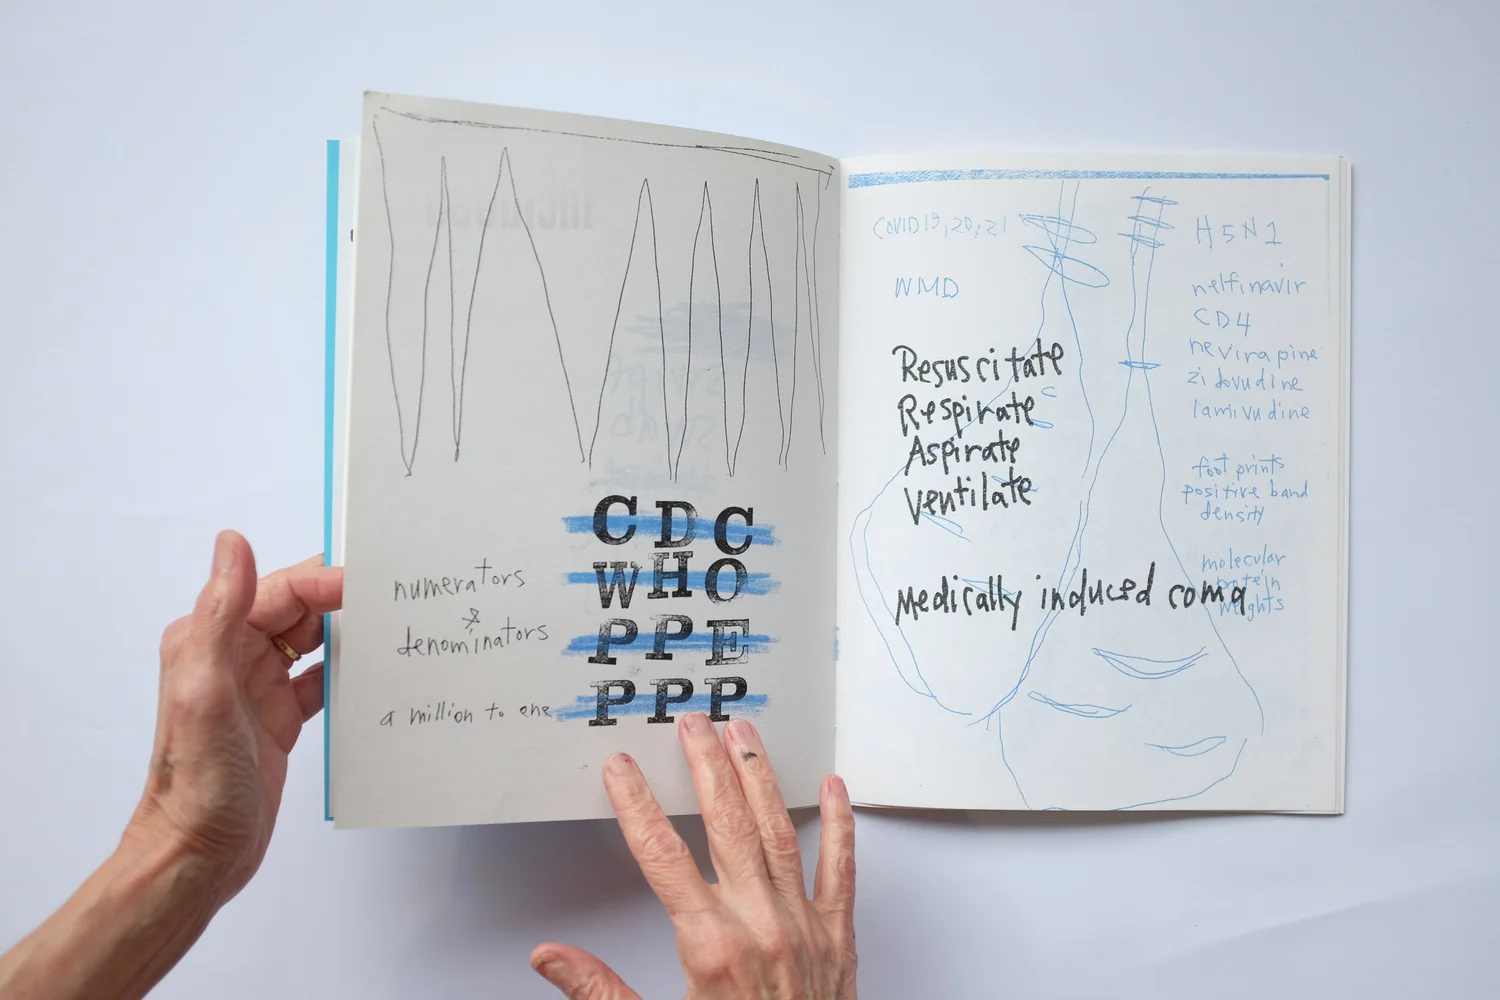 numerators
&
denominators
a million to one
CDC
WHO
PPE
PPP
COVID 19, 20, 21
WMD
Resuscitate
Respirate
Aspirate
Ventilate
Medically induced coma
H5N1
nelfinavir
CD4
nevirapine
zidovudine
lamivudine
foot prints
positive band
density
molecular
protein
weights